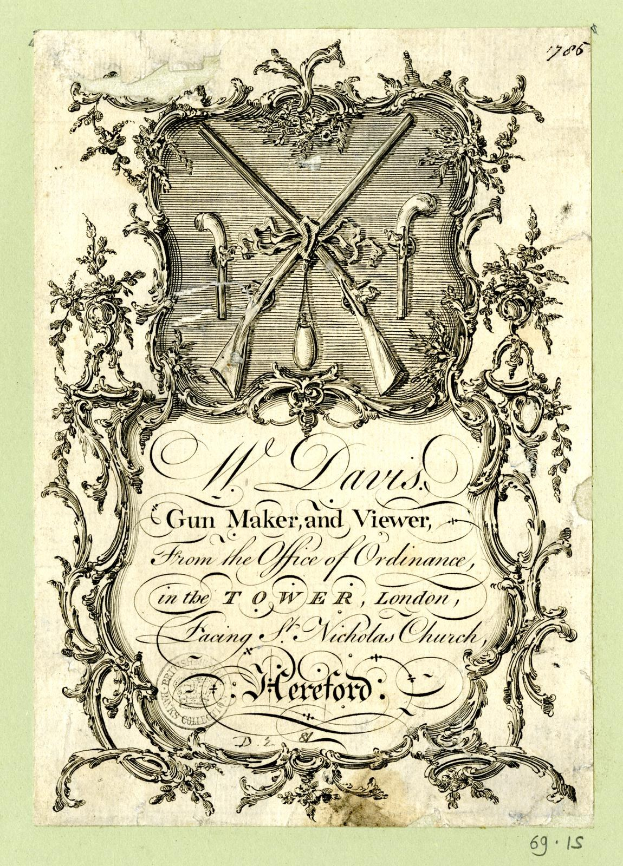 1786
Wm. Davis.
Gun Maker, and Viewer,
From the Office of Ordinance,
in the TOWER, London,
Facing St. Nicholas Church,
: Hereford :
69.15